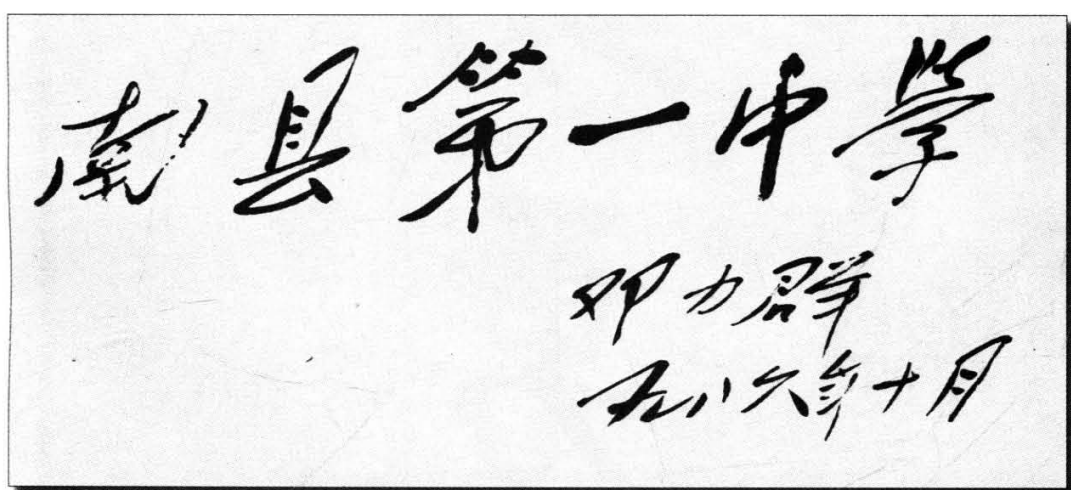 南县第一中学
邓力群
一九八六年十月